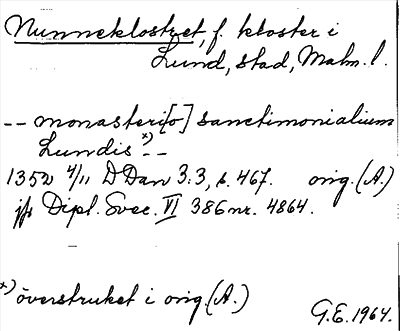 Nunneklostret, f. kloster i
Lund, stad, Malm. l.
-- monasteri[o] sanctimonialium
Lundis x) --
1352 4/11 DDan 3:3, s. 467. orig. (A.)
jfr Dipl. Svec. VI 386 nr. 4864.
x) överstruket i orig. (A.)
G.E. 1964.